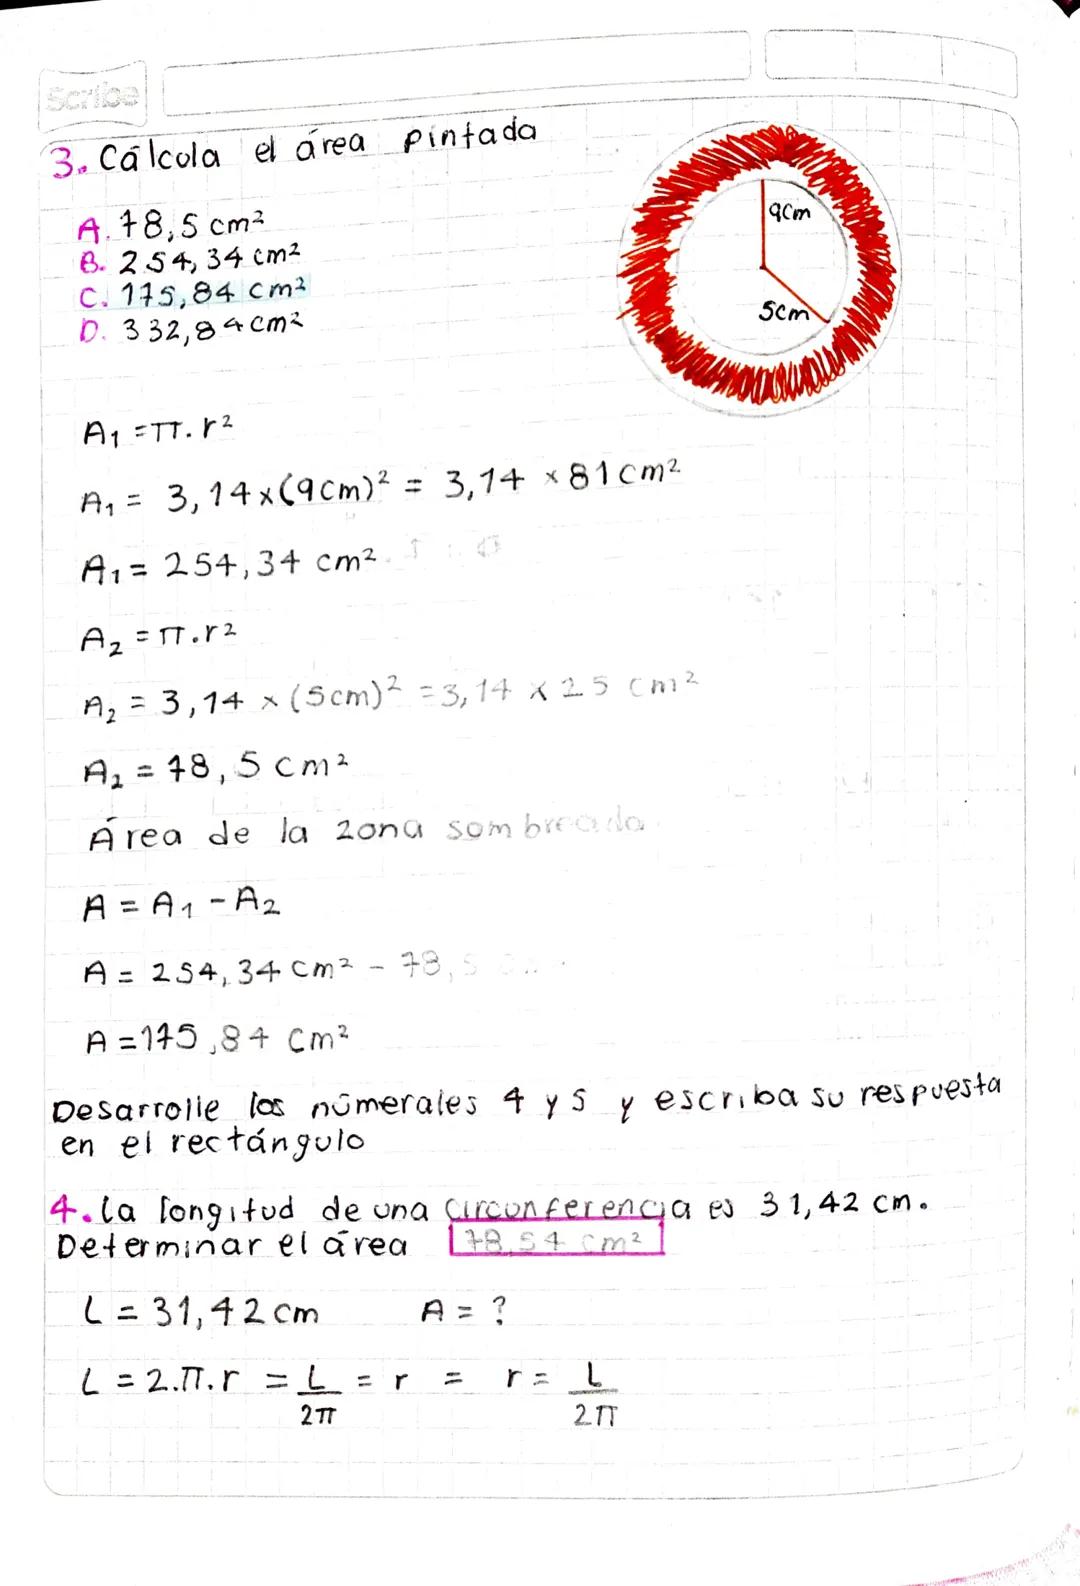 Scribe
3. Cálcula el área pintada
A. 78,5 cm²
B. 254,34 cm²
C. 175,84 cm²
D. 332,84 cm²
9cm
5cm
A₁ = π. r²
A₁ = 3,14 x (9cm)² = 3,14 x 81 cm²
A₁ = 254,34 cm²
A₂ = π. r²
A₂ = 3,14 x (5cm)² = 3,14 x 25 cm²
A₂ = 78,5 cm²
Área de la zona sombreada
A = A₁ - A₂
A = 254,34 cm² - 78,5
A = 175,84 cm²
Desarrolle los númerales 4 y 5 y escriba su respuesta
en el rectángulo
4. La longitud de una circunferencia es 31,42 cm.
Determinar el área 78,54 cm²
L = 31,42 cm A = ?
L = 2.π.r = L/2π = r = r = L/2π